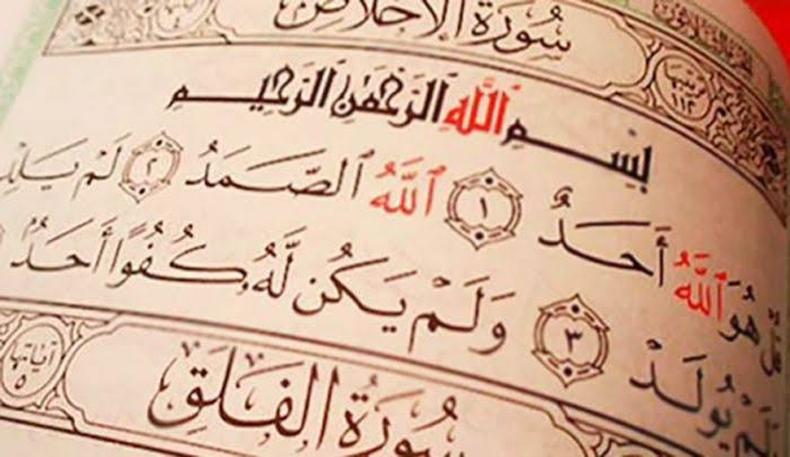 سُورَةُ الإِخْلَاصِ ترتيبها ١١٢
بِسْمِ ٱللَّهِ ٱلرَّحْمَٰنِ ٱلرَّحِيمِ
هُوَ ٱللَّهُ أَحَدٌ ١ ٱللَّهُ ٱلصَّمَدُ ٢ لَمْ يَلِدْ
يُولَدْ ٣ وَلَمْ يَكُن لَّهُۥ كُفُوًا أَحَدٌۢ
سُورَةُ الفَلَقِ آياتها ٥